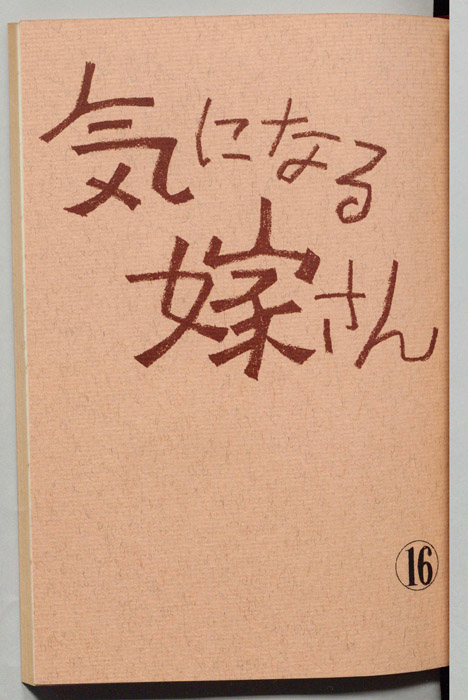 気になる
嫁さん
16